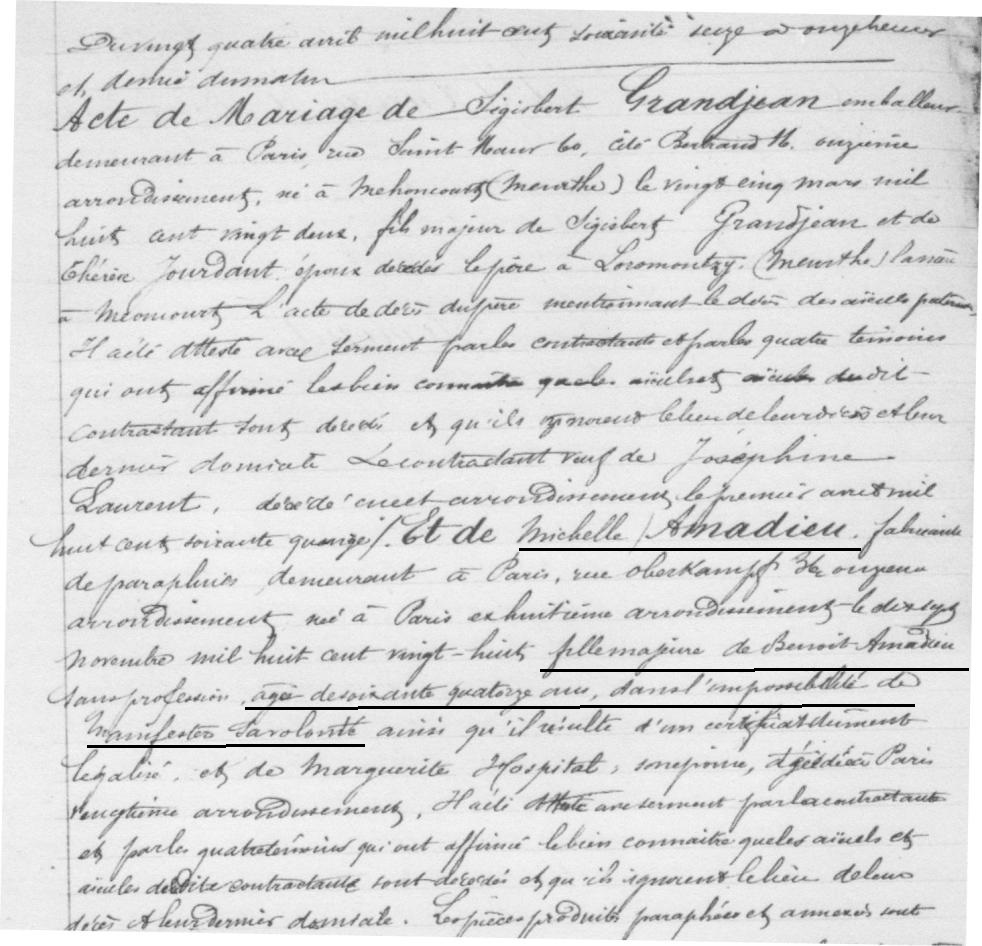 Du vingt quatre avril mil huit cent soixante seize à onze heures
et demie du matin
Acte de Mariage de Sigisbert Grandjean emballeur
demeurant à Paris, rue Saint Maur 60, cité Bertrand 11. onzième
arrondissement, né à Mehoncourt (Meurthe) le vingt cinq mars mil
huit cent vingt deux, fils majeur de Sigisbert Grandjean et de
Thérèse Jourdant, époux décédés le père à Loromontzey (Meurthe) la mère
à Meoncourt L'acte de décès du père mentionnant le décès des aïeuls paternels
Il a été attesté avec serment par les contractants et par les quatre témoins
qui ont affirmé les bien connaitre que les aïeuls et aïeules dudit
contractant sont décédés et qu'ils ignorent le lieu de leur décès et leur
dernier domicile Le contractant veuf de Joséphine
Laurent, décédée en cet arrondissement le premier avril mil
huit cent soixante quinze /. Et de Michelle Amadieu. fabricante
de parapluies demeurant à Paris, rue Oberkampf onzième
arrondissement née à Paris ex huitième arrondissement le dix sept
novembre mil huit cent vingt-huit fille majeure de Benoit Amadieu
sans profession, âgé de soixante quatorze ans, dans l'impossibilité de
manifester sa volonté ainsi qu'il résulte d'un certificat dûment
légalisé. et de Marguerite Hospital, son épouse, à Paris
vingtième arrondissement, Il a été attesté avec serment par la contractante
et par les quatre témoins qui ont affirmé le bien connaitre que les aïeuls et
aïeules de ladite contractante sont décédés et qu'ils ignorent le lieu de leur
décès et leur dernier domicile. Les pièces produites paraphées et annexées sont